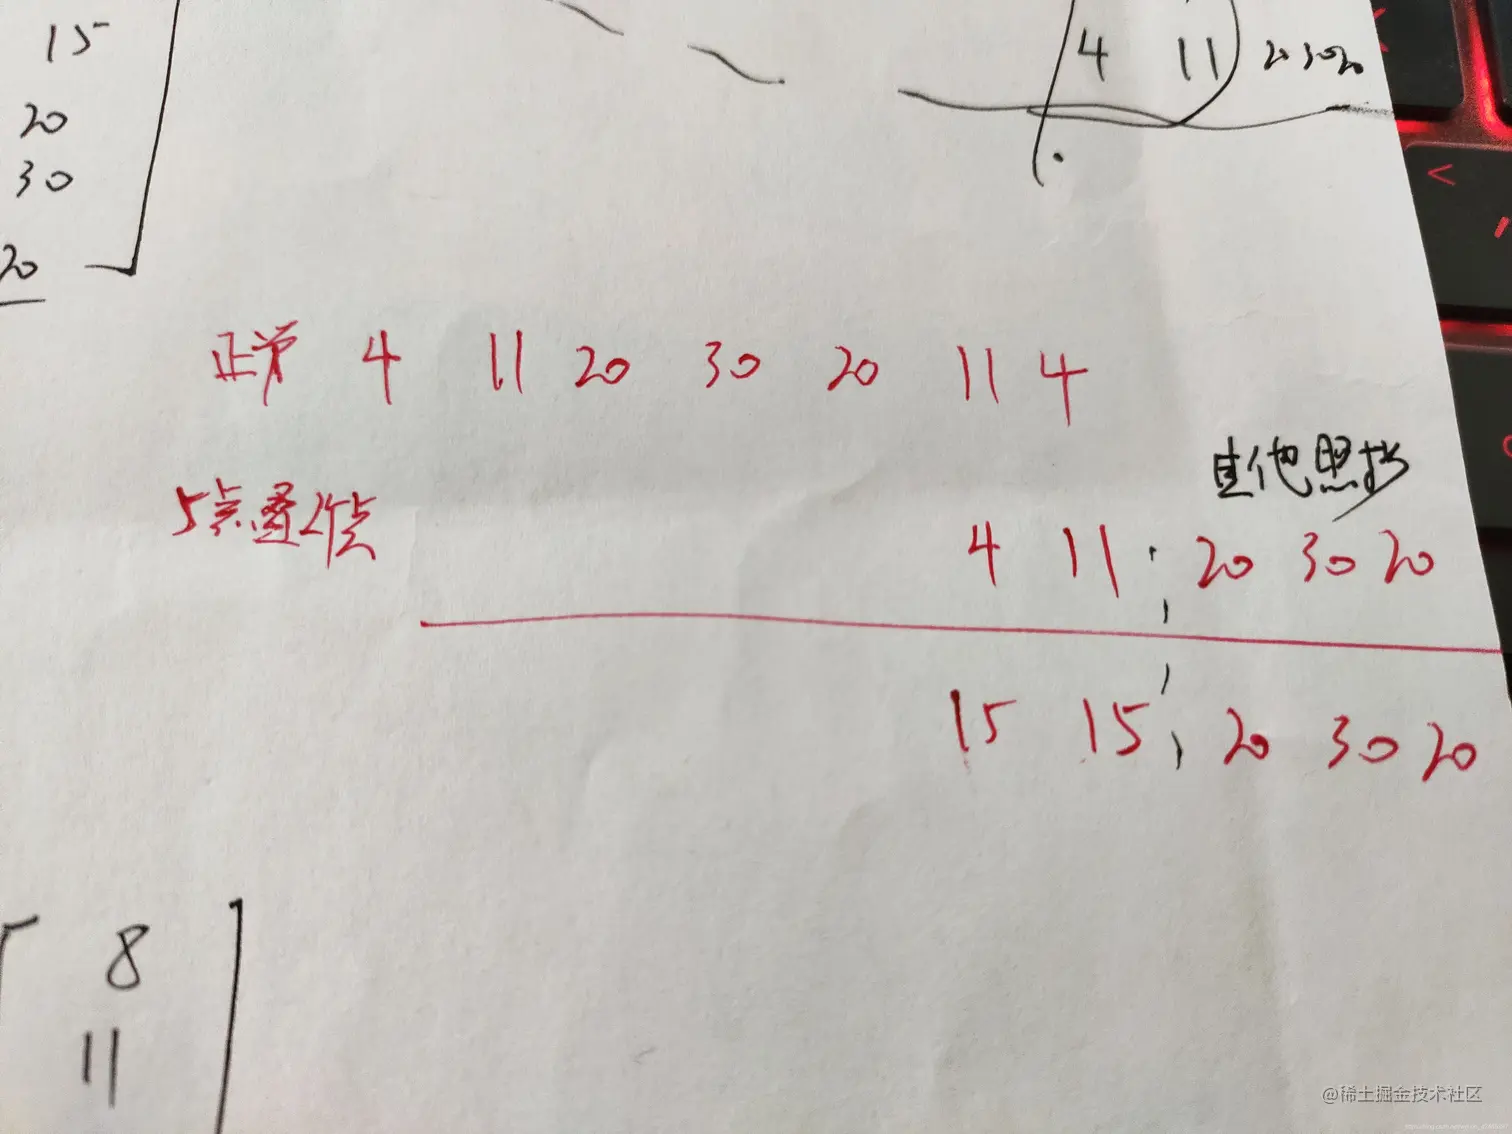 15
20
30
20
4 11 20 30 20
正常 4 11 20 30 20 11 4
其他照抄
5点叠2个点 4 11 20 30 20
15 15 20 30 20
8
11
@稀土掘金技术社区